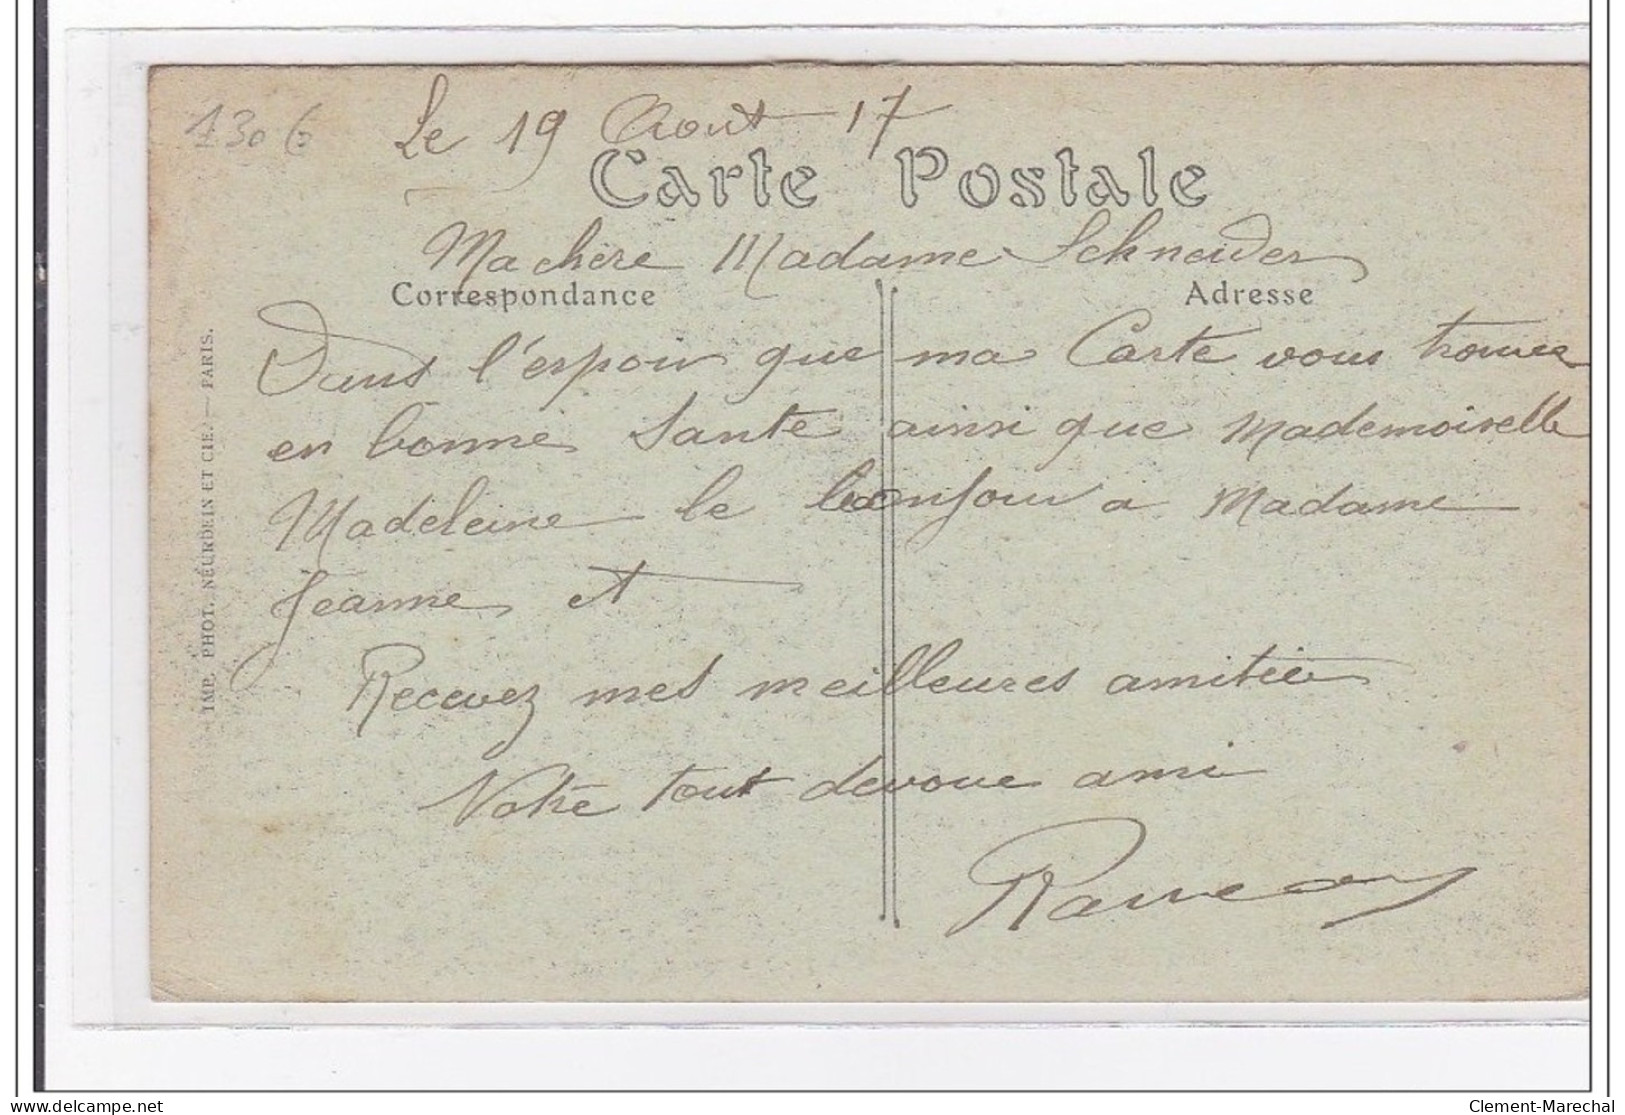 1306
Le 19 Aout 17
Carte Postale
Ma chère Madame Schneider
Correspondance
Adresse
Dans l'espoir que ma Carte vous trouvez
en bonne Sante ainsi que Mademoiselle
Madeleine le bonjour a Madame
Jeanne et
Recevez mes meilleures amitiés
Votre tout devoue ami
IMP. PHOT. NEURDEIN ET CIE. — PARIS.
www.delcampe.net
Clement-Marechal